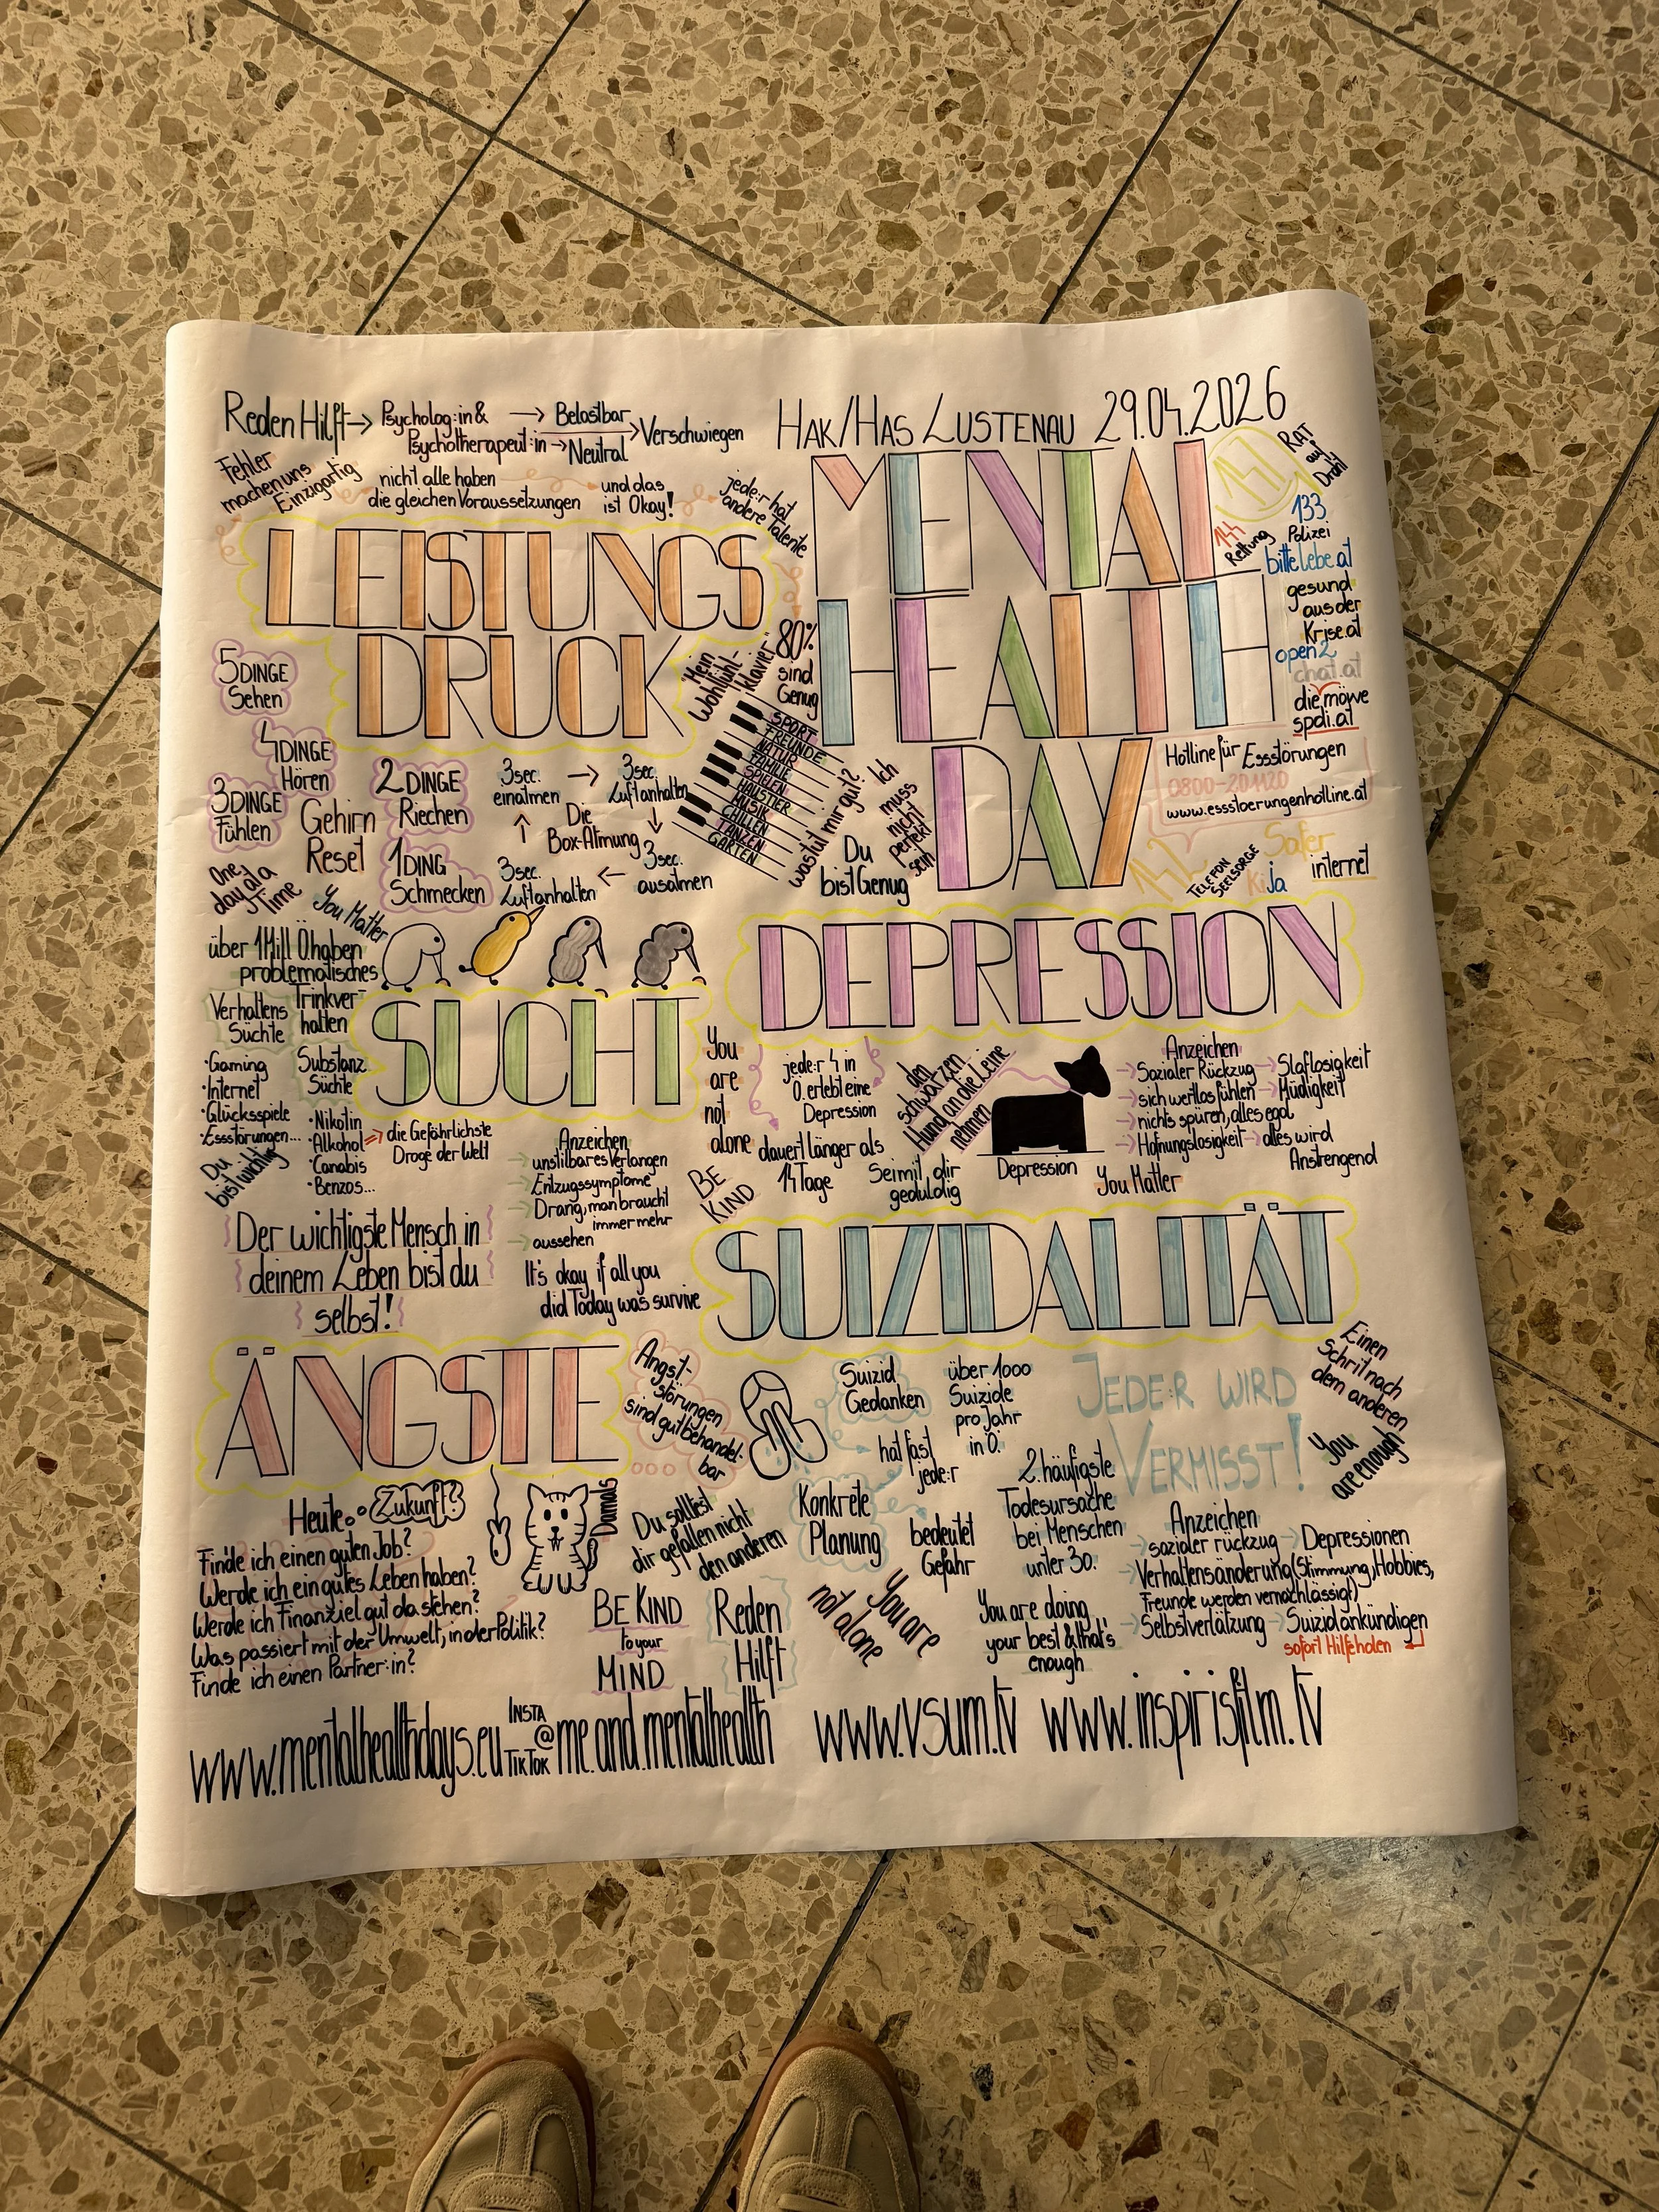 Reden Hilft → Psycholog:in & Psychotherapeut:in → Belastbar → Neutral → Verschwiegen
HAK/HAS LUSTENAU 29.04.2026
MENTAL
HEALTH
DAY
147
RAT
auf
Draht
133
Polizei
144
Rettung
bittelebe.at
gesund
aus der
Krise.at
open2
chat.at
die möwe
spdi.at
Hotline für Essstörungen
0800-201120
www.essstoerungenhotline.at
142
TELEFON
SEELSORGE
Safer
internet
Kija
Fehler
machen uns
Einzigartig
nicht alle haben
die gleichen Voraussetzungen
und das
ist Okay!
jede:r hat
andere Talente
LEISTUNGS
DRUCK
80%
sind
Genug
"Mein
Wohlfühl-
klavier"
SPORT
FREUNDE
NATUR
FAMILIE
SPIELEN
HAUSTIER
MUSIK
CHILLEN
TANZEN
GARTEN
was tut mir gut?
Ich
muss
nicht
perfekt
sein
Du
bist Genug
5 DINGE
Sehen
4 DINGE
Hören
3 DINGE
Fühlen
2 DINGE
Riechen
1 DING
Schmecken
Gehirn
Reset
3 sec.
einatmen
→
3 sec.
Luft anhalten
↓
3 sec.
ausatmen
←
3 sec.
Luft anhalten
↑
Die
Box-Atmung
One
day at a
Time
You Matter
über 1 Mill Ö. haben
problematisches
Trinkver-
halten
SUCHT
Verhaltens
Süchte
·Gaming
·Internet
·Glücksspiele
·Essstörungen...
Substanz
Süchte
·Nikotin
·Alkohol ⇒ die Gefährlichste
Droge der Welt
·Canabis
·Benzos...
Du
bist wichtig
Anzeichen
→ unstilbares Verlangen
→ Entzugssymptome
→ Drang, man braucht
immer mehr
→ aussehen
Der wichtigste Mensch in
deinem Leben bist du
selbst!
It's okay if all you
did Today was survive
DEPRESSION
You
are
not
alone
jede:r 4 in
Ö. erlebt eine
Depression
dauert länger als
14 Tage
den
schwarzen
Hund an die Leine
nehmen
Sei mit dir
geduldig
Depression
Anzeichen
→ Sozialer Rückzug → Slaflosigkeit
→ sich wertlos fühlen → Müdigkeit
→ nichts spüren, alles egal
→ Hofnungslosigkeit → alles wird
Anstrengend
BE
KIND
You Matter
SUIZIDALITÄT
Suizid
Gedanken
hat fast
jede:r
über 1000
Suizide
pro Jahr
in Ö.
JEDE:R WIRD
VERMISST!
Einen
Schrit nach
dem anderen
You
are enough
Konkrete
Planung
bedeutet
Gefahr
2. häufigste
Todesursache
bei Menschen
unter 30.
Anzeichen
→ sozialer rückzug → Depressionen
→ Verhaltensänderung (Stimmung, Hobbies,
Freunde werden vernachlässigt)
→ Selbstverlätzung → Suizid ankündigen
sofort Hilfe holen
You are
not alone
You are doing
your best & that's
enough
ÄNGSTE
Angst-
störungen
sind gut behandel-
bar
Heute
Zukunft?
Damals
Finde ich einen guten Job?
Werde ich ein gutes Leben haben?
Werde ich Finanziel gut da stehen?
Was passiert mit der Umwelt, in der Politik?
Finde ich einen Partner:in?
Du solltest
dir gefallen nicht
den anderen
BE KIND
to your
MIND
Reden
Hilft
www.mentalhealthdays.eu INSTA @ TIKTOK me.and.mentalhealth www.vsum.tv www.inspirisfilm.tv